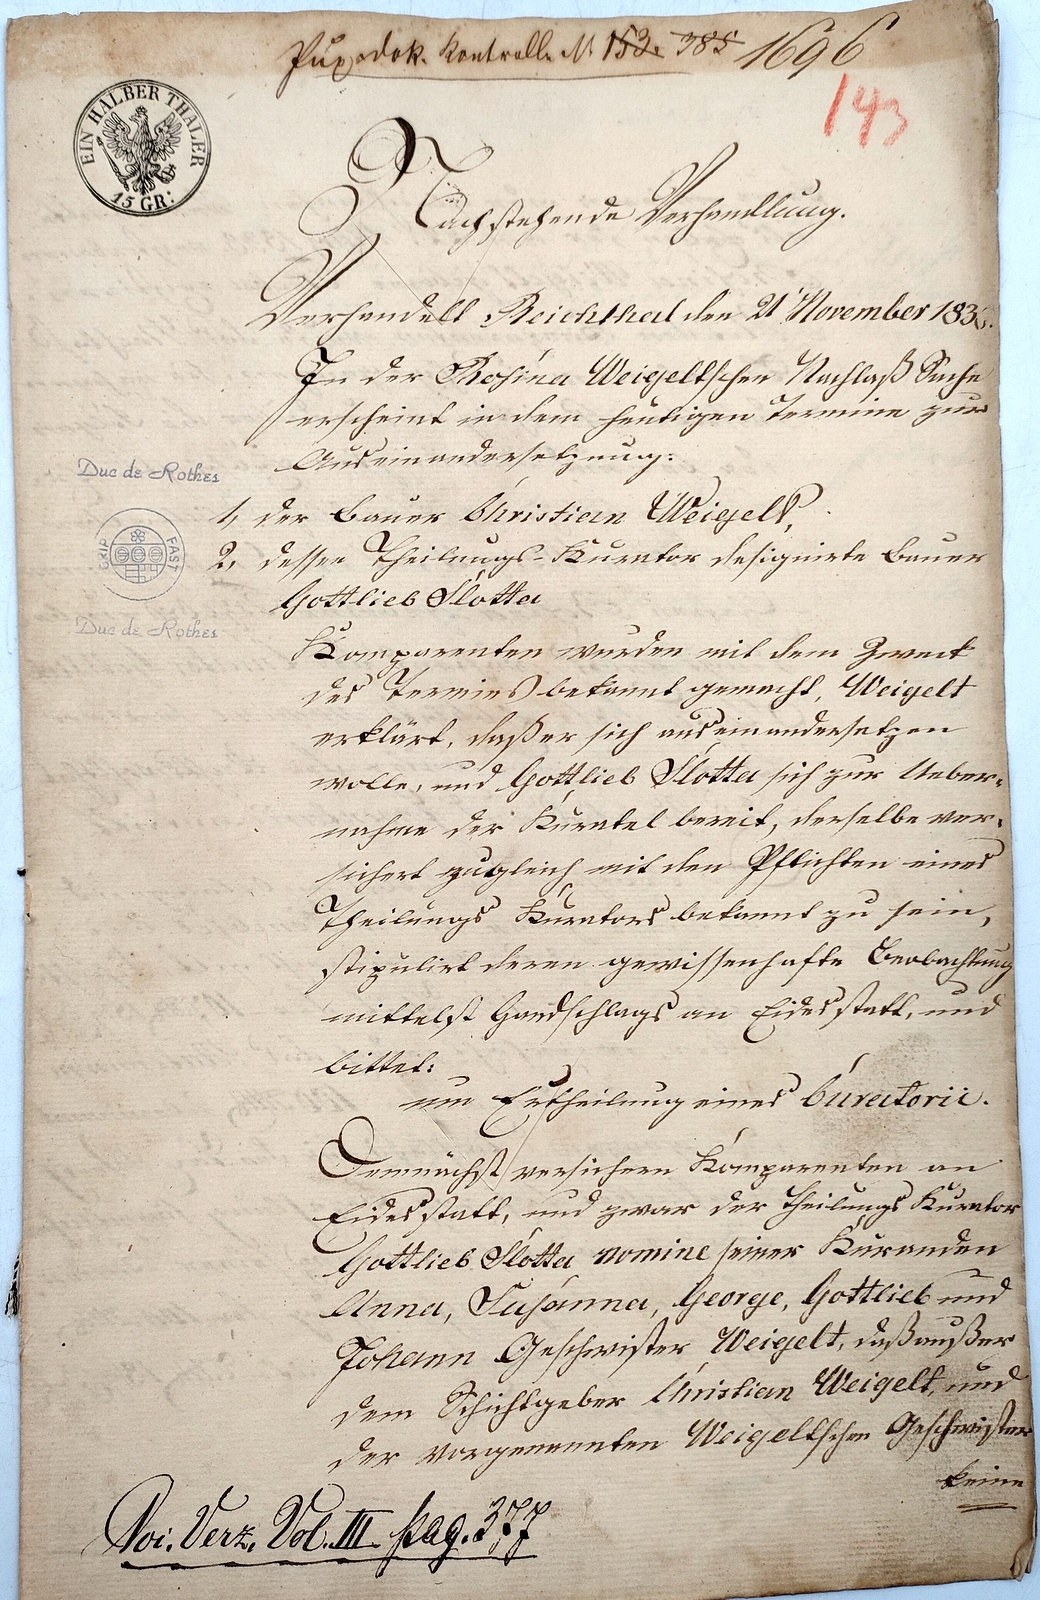 Kontrolle № 153. 385 1696
143
EIN HALBER THALER
15 GR:
Nachstehende Verhandlung.
Verhandelt Reichthal den 21 November 1836.
In der Rosina Weigeltschen Nachlaß Sache
erscheint in dem heutigen Termine zur
Auseinandersetzung:
Duc de Rothes
GRIP FAST
Duc de Rothes
1, der Bauer Christian Weigelt,
2, dessen Theilungs-Kurator designirte Bauer
Gottlieb Slotta
Komparenten wurden mit dem Zweck
des Termins bekannt gemacht, Weigelt
erklärt, daß er sich auseinandersetzen
wolle, und Gottlieb Slotta sich zur Ueber-
nahme der Kuratel bereit, derselbe ver-
sichert zugleich mit den Pflichten eines
Theilungs Kurators bekannt zu sein,
stipulirt deren gewissenhafte Beobachtung
mittelst Handschlags an Eidesstatt, und
bittet:
um Ertheilung eines Curatorii.
Demnächst versichern Komparenten an
Eidesstatt, und zwar der Theilungs Kurator
Gottlieb Slotta nomine seiner Kuranden
Anna, Susanna, George, Gottlieb und
Johann Geschwister Weigelt, daß außer
dem Schichtgeber Christian Weigelt, und
der vorgenannten Weigeltschen Geschwister
keine
Verz. Vol. III pag. 377